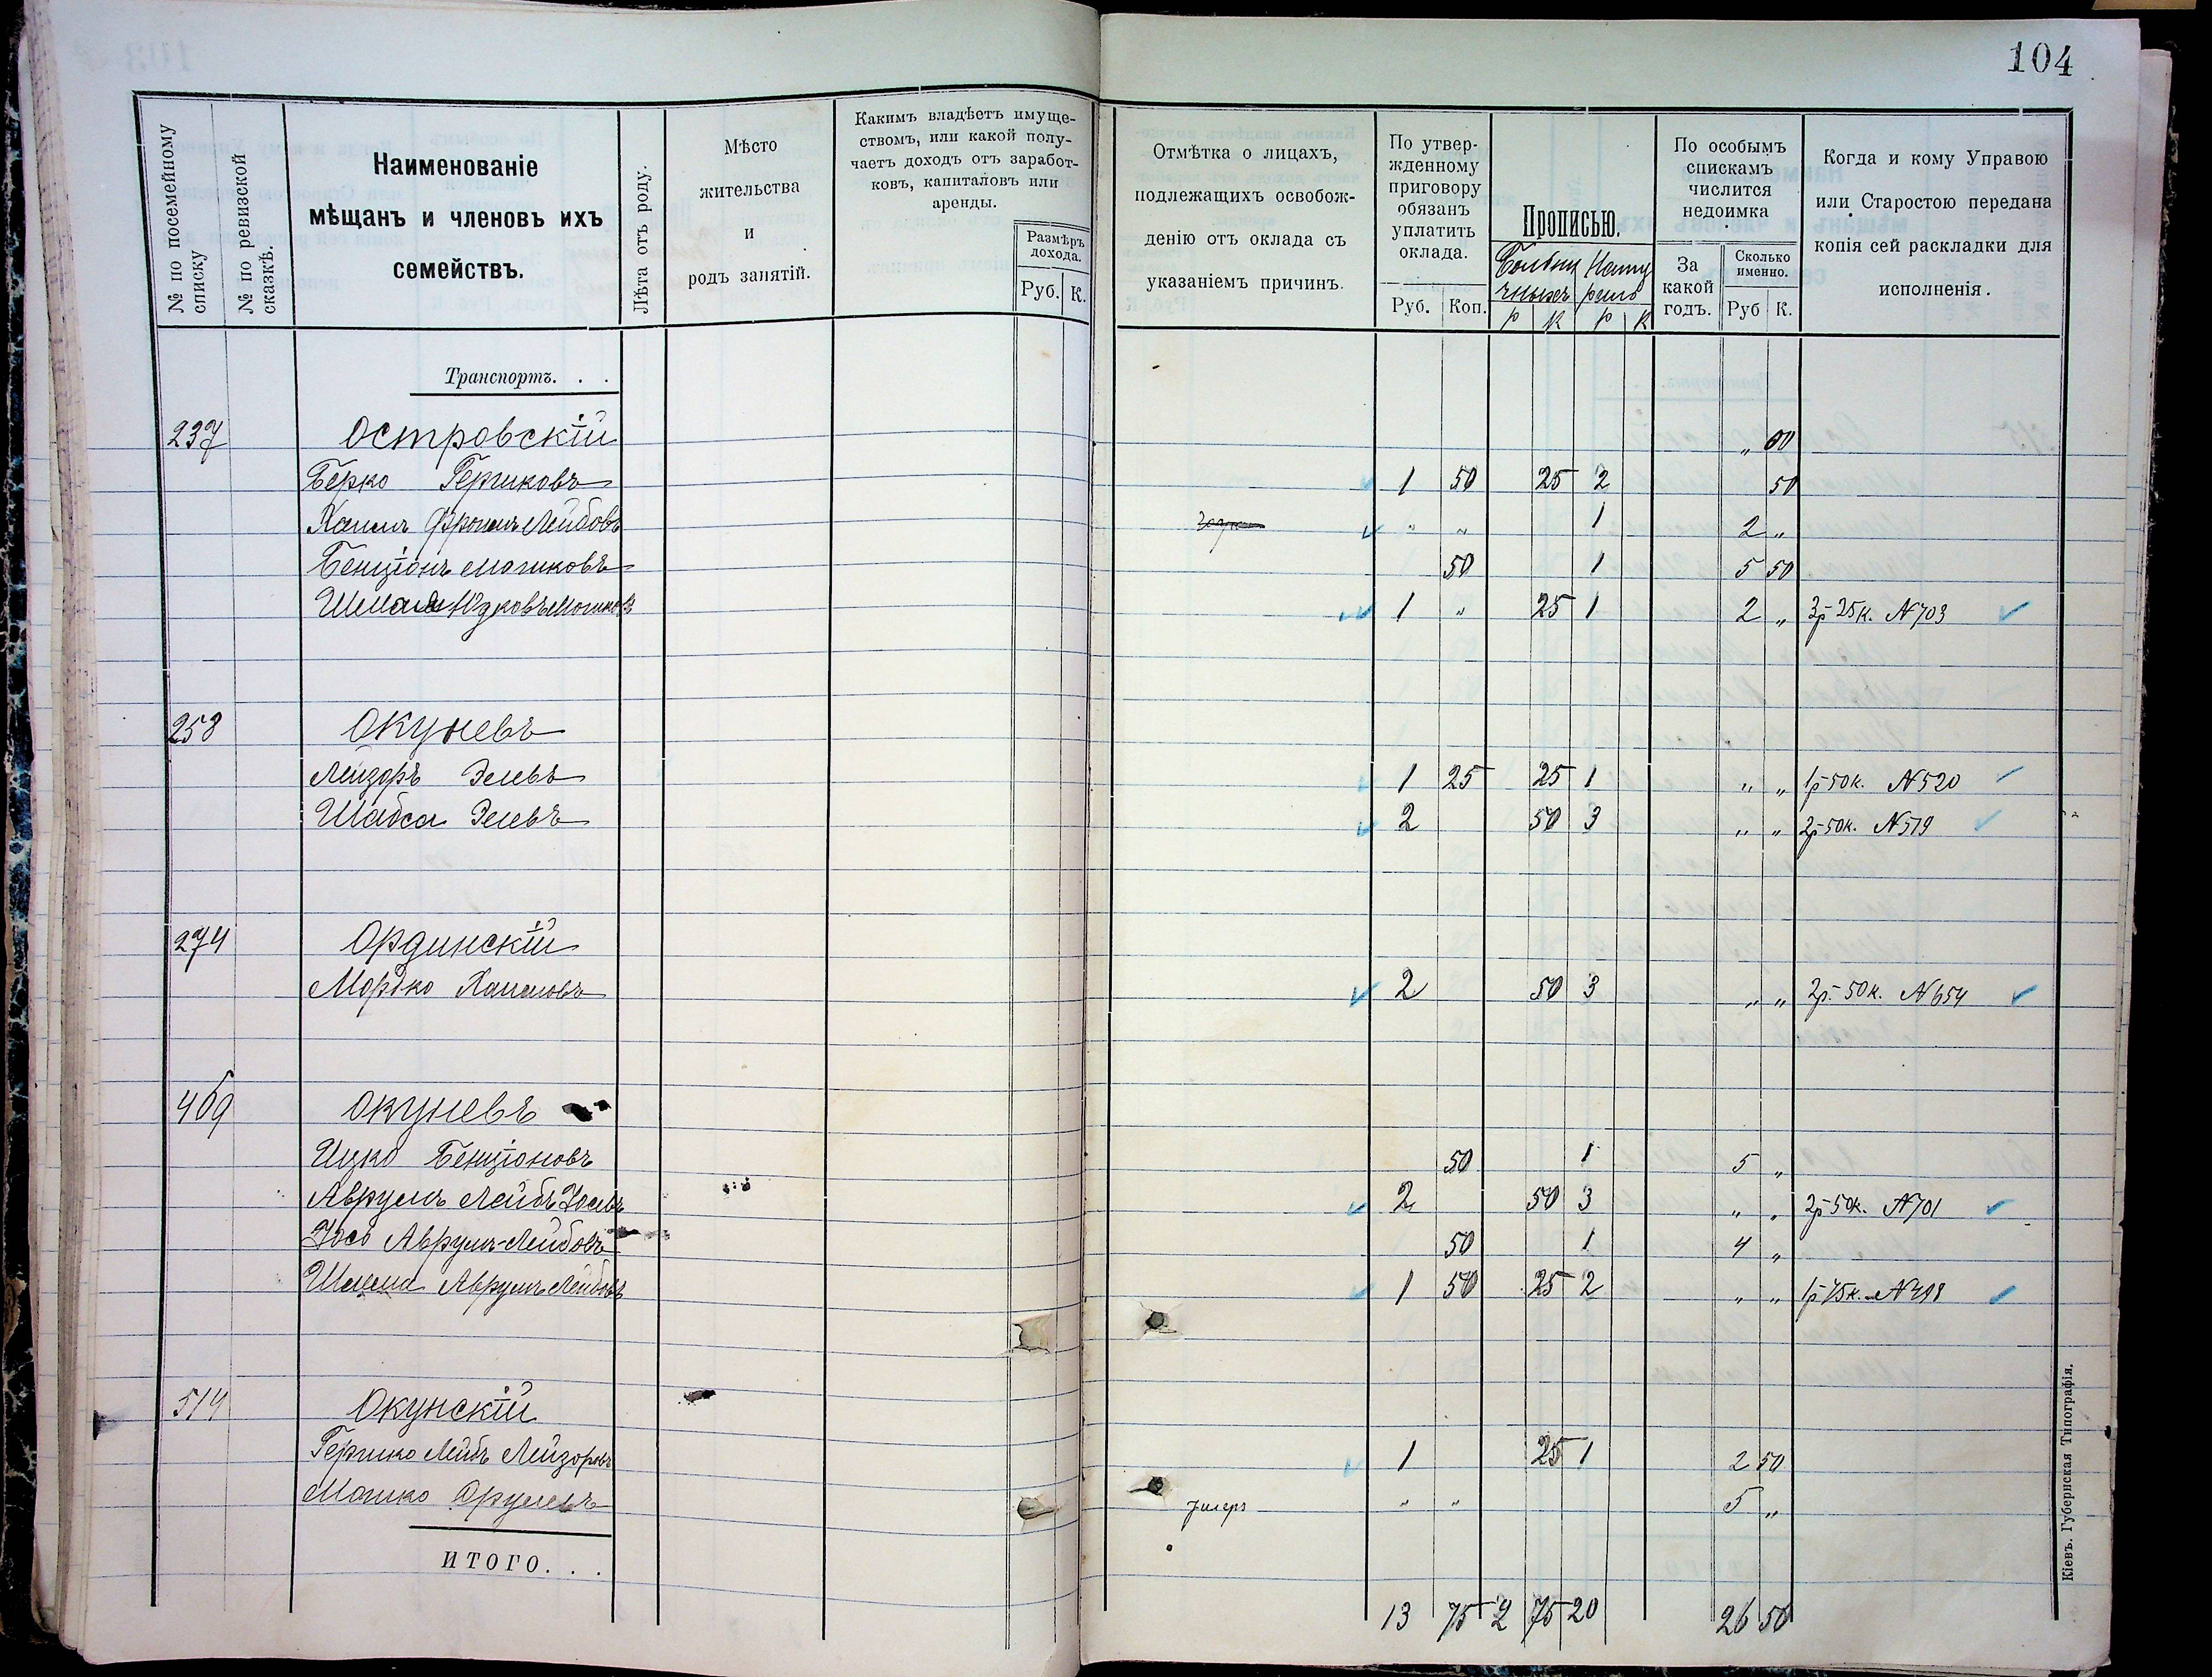 104
№ по посемейному списку
№ по ревизской сказкѣ.
Наименованіе
мѣщанъ и членовъ ихъ
семействъ.
Лѣта отъ роду.
Мѣсто
жительства
и
родъ занятій.
Какимъ владѣетъ имуще-
ствомъ, или какой полу-
чаетъ доходъ отъ заработ-
ковъ, капиталовъ или
аренды.
Размѣръ
дохода.
Руб. К.
Отмѣтка о лицахъ,
подлежащихъ освобож-
денію отъ оклада съ
указаніемъ причинъ.
По утвер-
жденному
приговору
обязанъ
уплатить
оклада.
Руб. Коп.
Прописью.
р к р к
По особымъ
спискамъ
числится
недоимка
За
какой
годъ.
Сколько
именно.
Руб К.
Когда и кому Управою
или Старостою передана
копія сей раскладки для
исполненія.
Транспортъ. . .
237 Островскій
Берко Гершковъ 1 50 25 2 50
Хаимъ Фроимъ Лейбовъ " " 1 2 "
Бенціонъ Мошковъ 50 1 5 50
Юдковъ Мошковъ 1 " 25 1 2 " 3р 25к. № 703
258 Окуневъ
Лейзоръ Элевъ 1 25 25 1 " " 1р 50к. № 520
Шабса Элевъ 2 50 3 " " 2р 50к. № 519
274 Ординскій
Мордко Хаимовъ 2 50 3 " " 2р. 50к. № 654
469 Окуневъ
Ицко Бенціоновъ 50 1 5 "
Аврумъ Лейбъ Іосевъ 2 50 3 " " 2р 50к. № 701
Іось Аврумъ-Лейбовъ 50 1 4 "
Аврумъ Лейбовъ 1 50 25 2 " " 1р 75к. № 498
514 Окунскій
Гершко Лейбъ Лейзоровъ 1 25 1 2 50
Мошко Срулевъ умеръ " " 5 "
ИТОГО. . .
13 75 2 75 20 26 50
Кіевъ. Губернская Типографія.